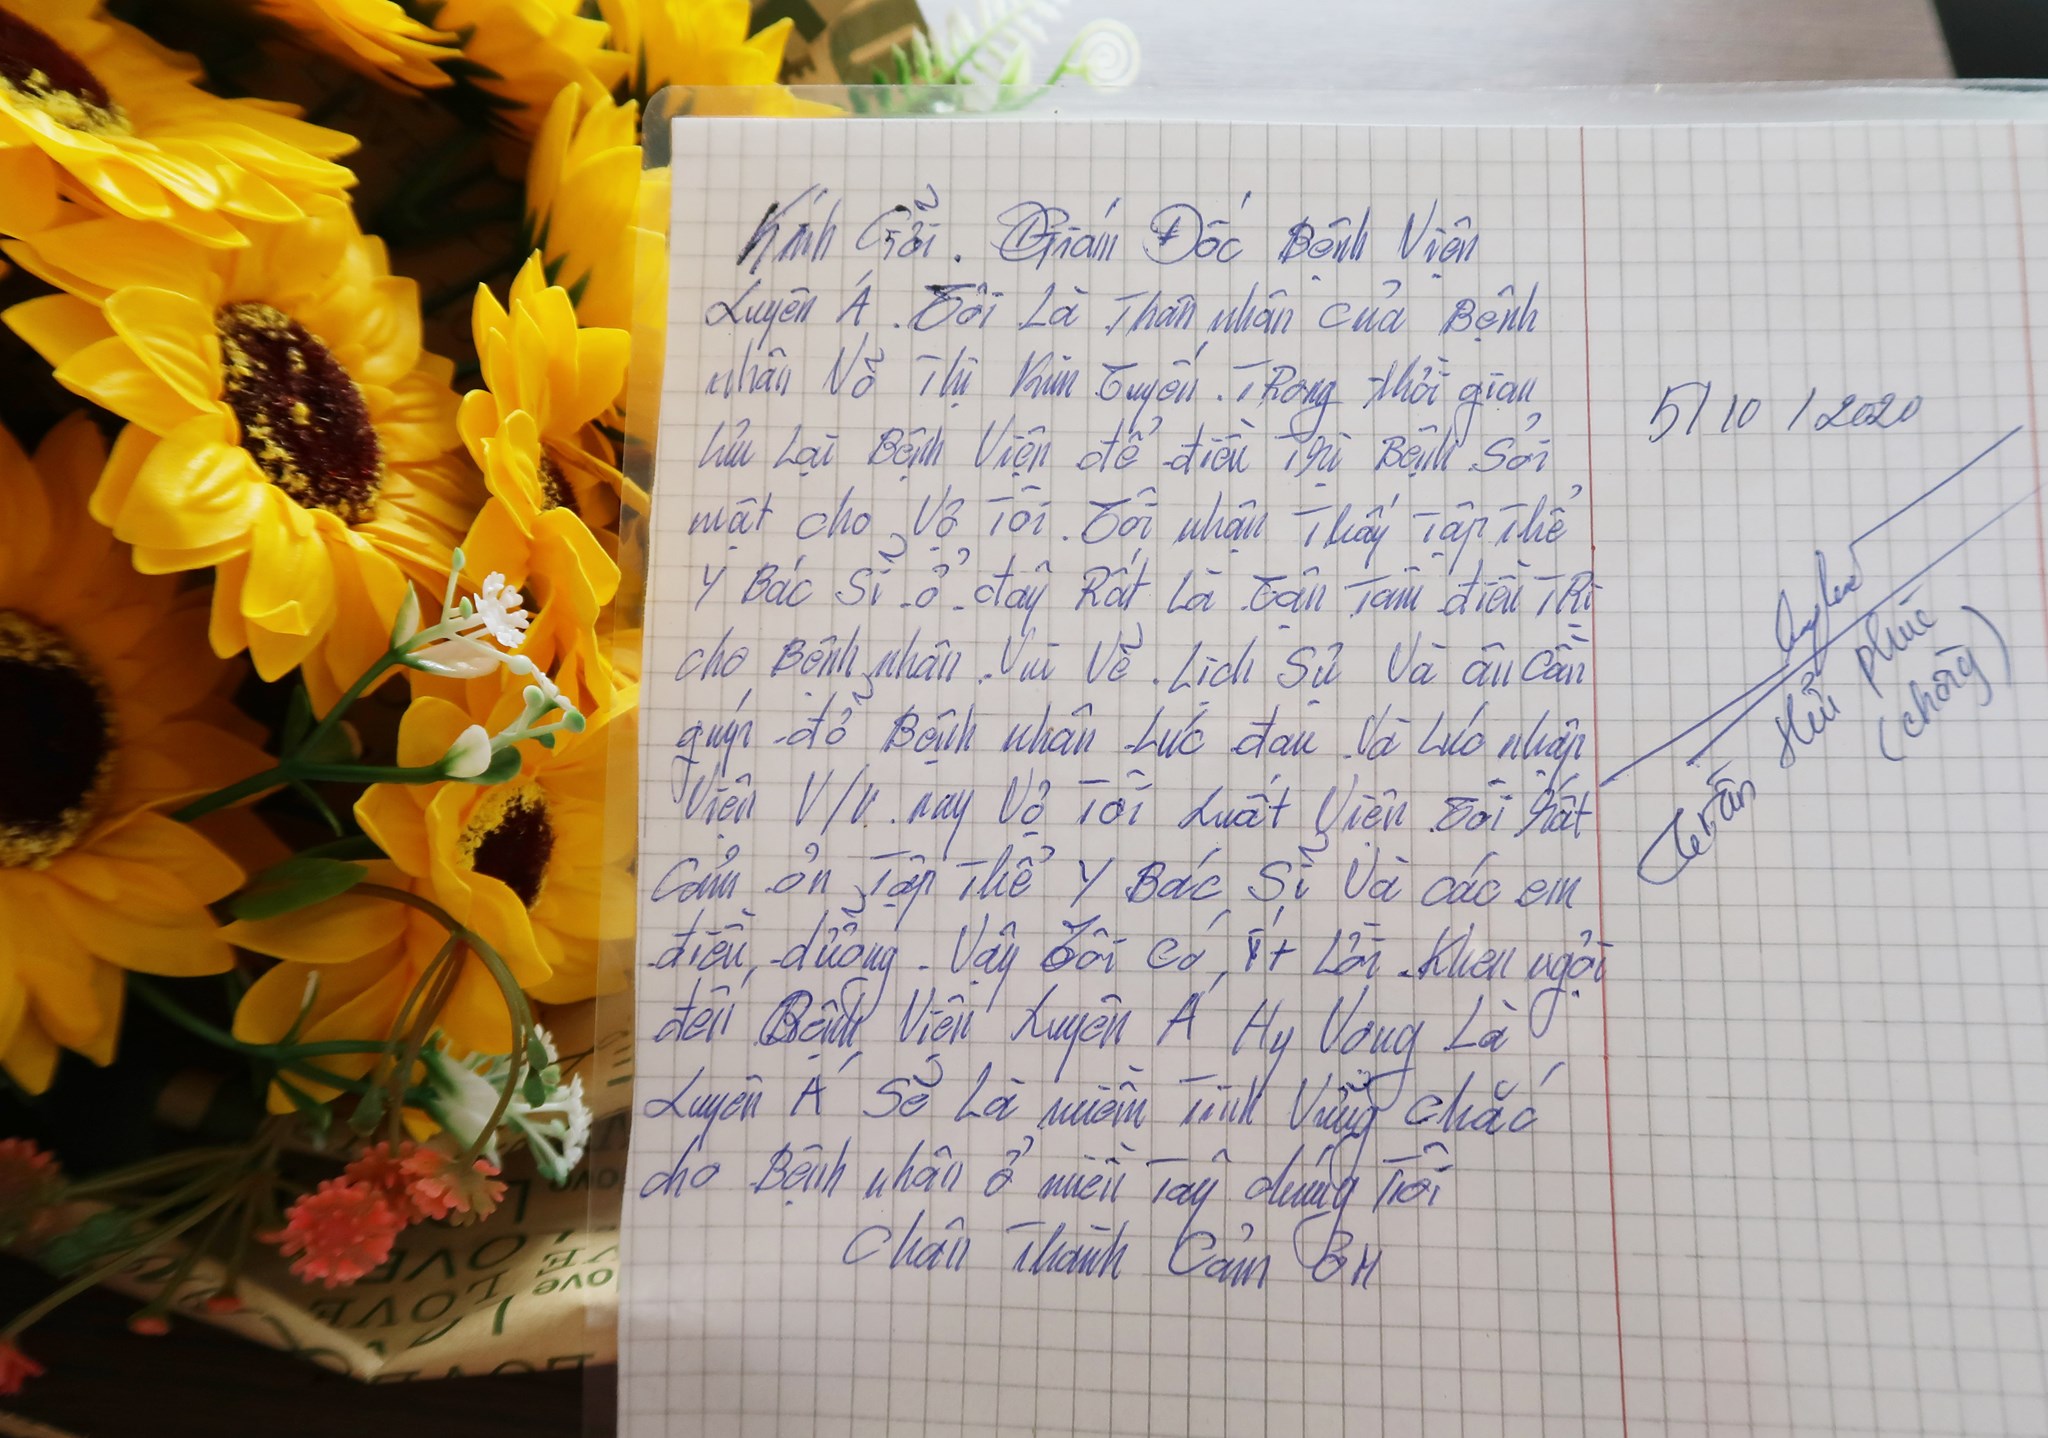 Kính Gởi. Giám Đốc Bệnh Viện
Xuyên Á. Tôi Là Thân nhân của Bệnh
nhân Võ Thị Kim Tuyến. Trong thời gian
Lưu Lại Bệnh Viện để điều Trị Bệnh Sỏi
mật cho Vợ Tôi. Tôi nhận Thấy Tập Thể
Y Bác Sĩ ở đây Rất Là Tận Tâm điều TRị
cho Bệnh nhân. Vui Vẽ. Lịch Sử Và ân Cần
giúp đỡ Bệnh nhân Lúc đau Và Lúc nhập
Viện V/V. nay Vợ Tôi Xuất Viện Tôi Rất
Cảm ơn Tập Thể Y Bác Sĩ Và các em
điều dưỡng. Vậy Tôi Có Ít Lời Khen ngợi
đến Bệnh Viện Xuyên Á Hy Vọng Là
Xuyên Á Sẽ Là niềm Tinh Vững chắc
cho Bệnh nhân ở miền Tây chúng Tôi
Chân Thành Cảm ƠN
5/10/2020
Trần Hữu Phúc
(chồng)
LOVE
LOVE
love